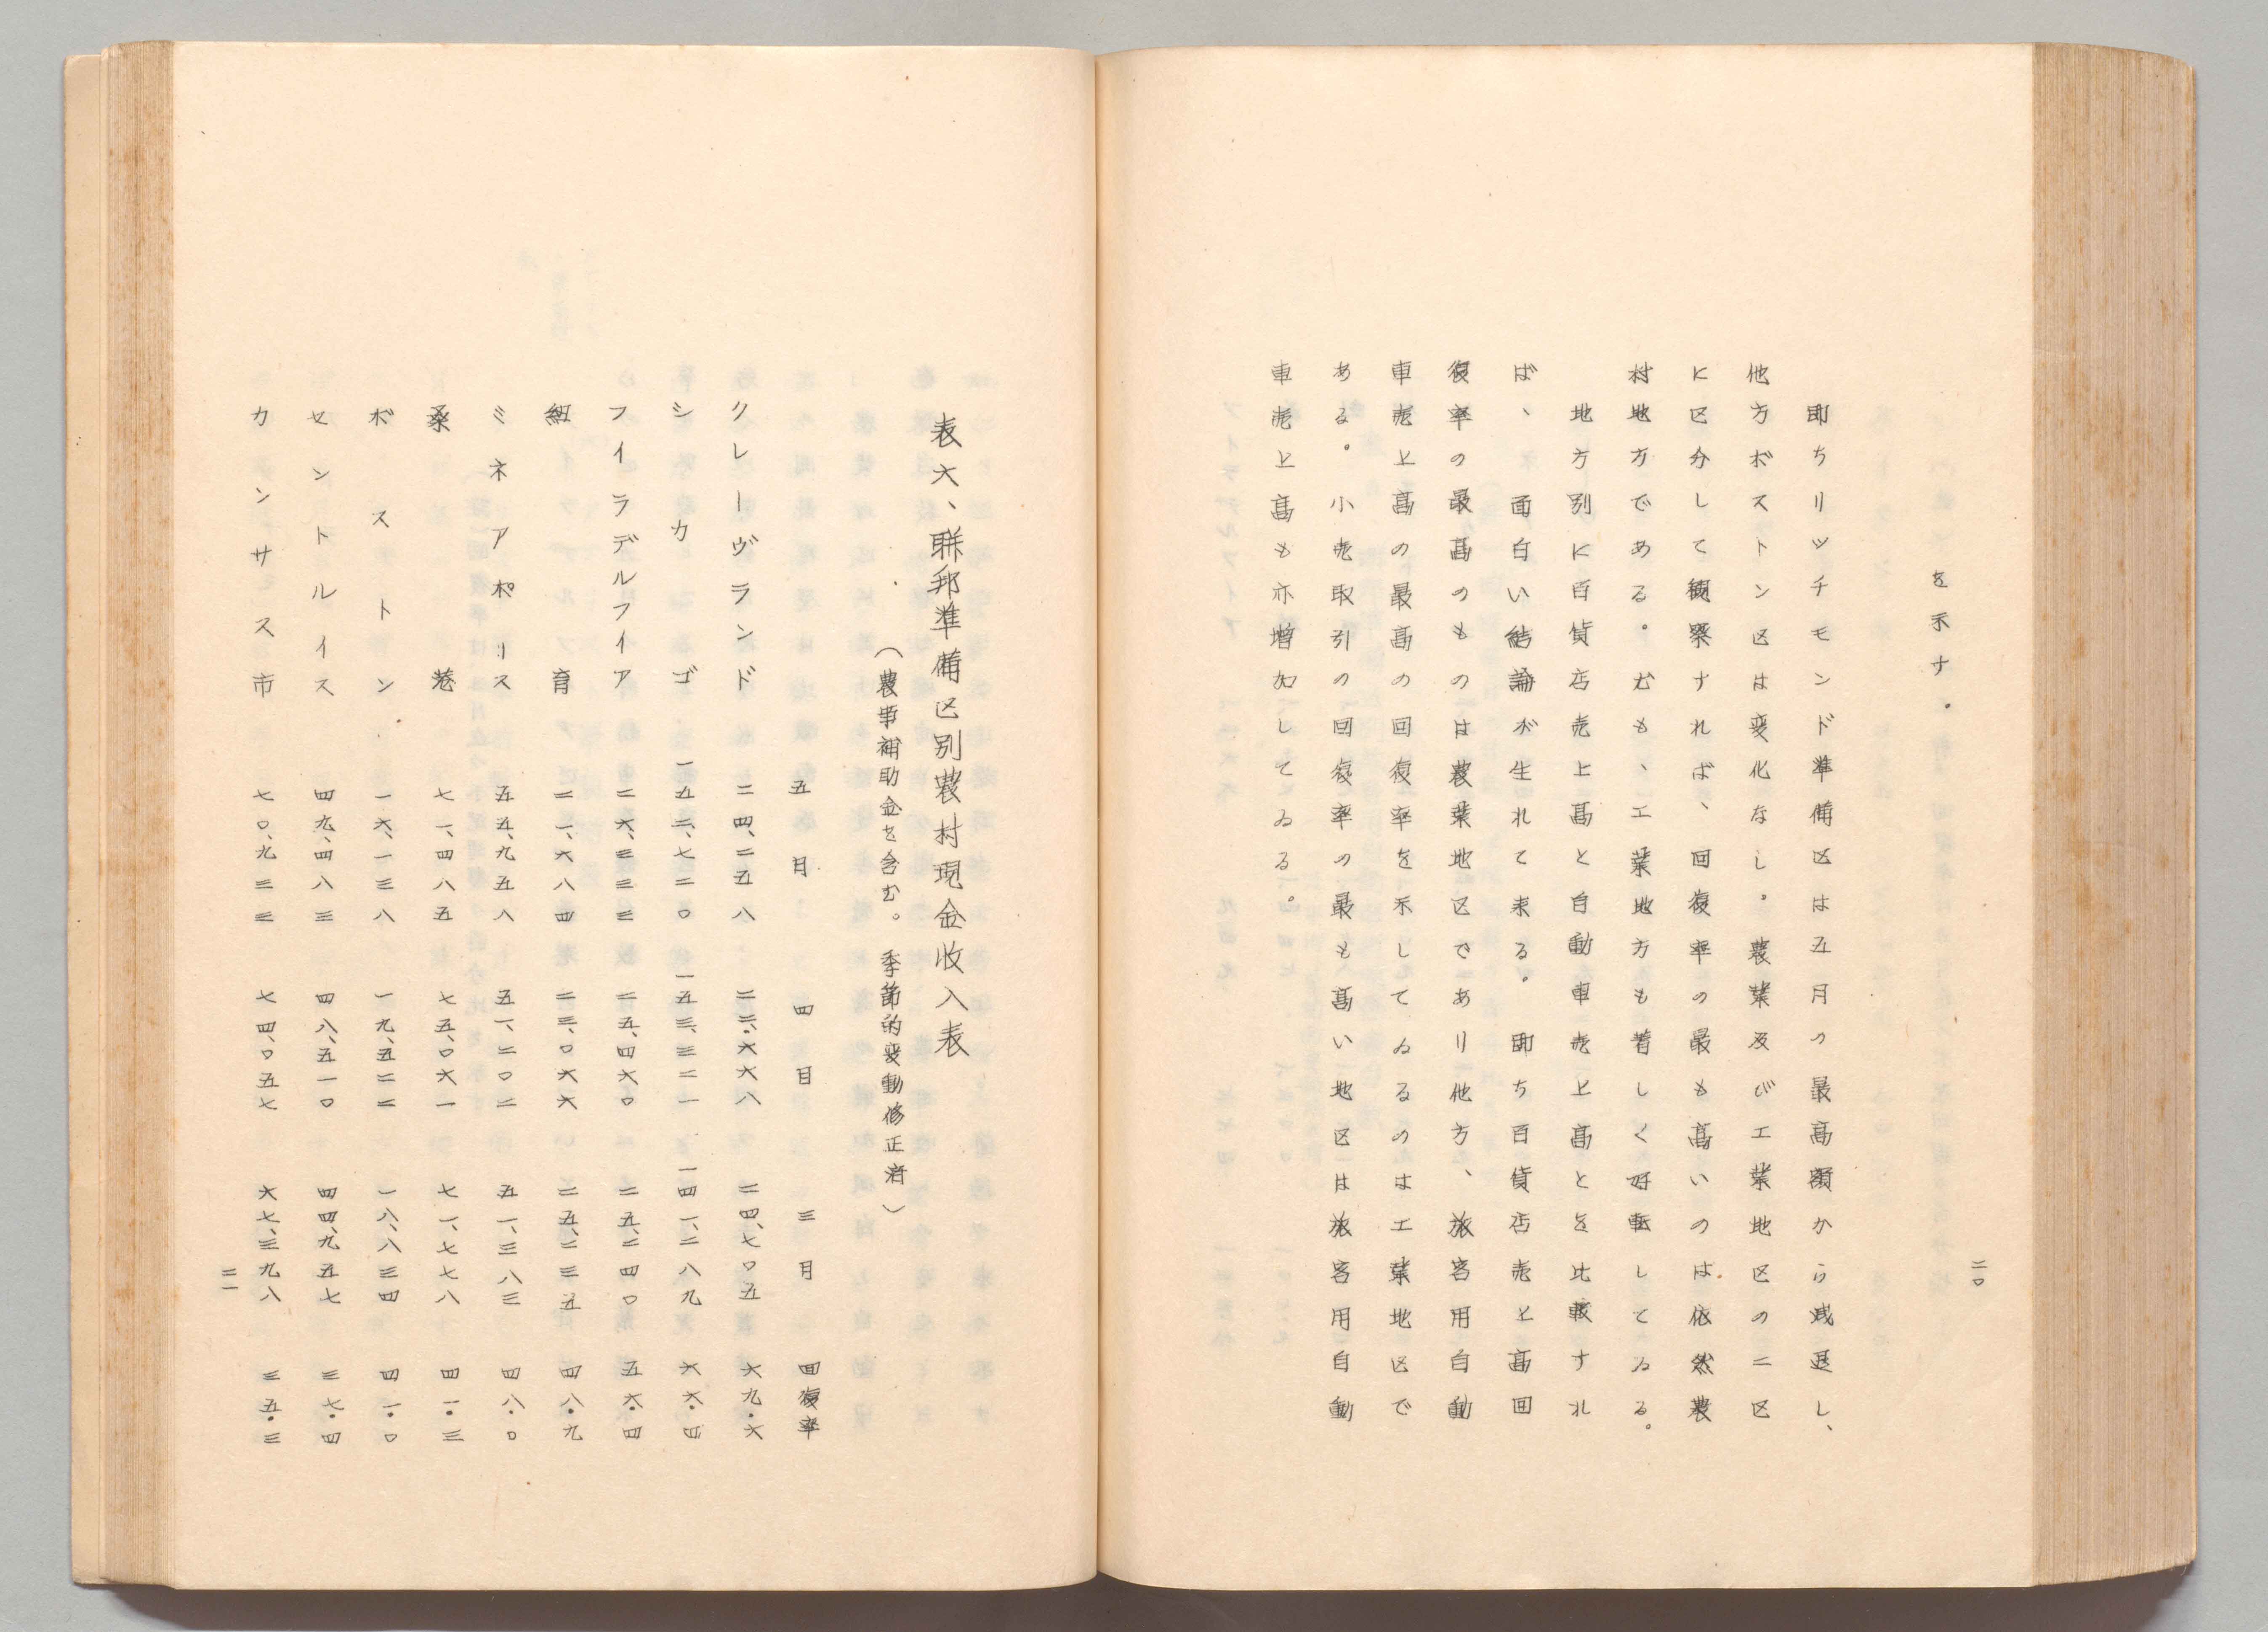 二〇
を示す。
即ちリッチモンド準備区は五月の最高額から減退し、
他方ボストン区は変化なし。農業及び工業地区の二区
に区分して観察すれば、回復率の最も高いのは依然農
村地方である。尤も、工業地方も著しく好転してゐる。
地方別に百貨店売上高と自動車売上高とを比較すれ
ば、面白い結論が生れて来る。即ち百貨店売上高回
復率の最高のものは農業地区であり他方、旅客用自動
車売上高の最高の回復率を示してゐるのは工業地区で
ある。小売取引の回復率の最も高い地区は旅客用自動
車売上高も亦増加してゐる。
表六、聯邦準備区別農村現金收入表
（農事補助金を含む。季節的変動修正済）
五月 四月 三月 回復率
クレーヴランド 二四、二五八 二二、六六八 二四、七〇五 六九・六
シカゴ 一五二、七二〇 一五三、三二一 一四一、二八九 六六・四
フイラデルフイア 二六、三三三 二五、四六〇 二五、二四〇 五六・四
紐育 二一、六八四 二三、〇六六 二五、二三五 四八・九
ミネアポリース 五五、九五八 五一、二〇二 五一、三八三 四八・〇
桑港 七一、四八五 七五、〇六一 七一、七七八 四一・三
ボストン 一六、一三八 一九、五二二 一八、八三四 四一・〇
セントルイス 四九、四八三 四八、五一〇 四四、九五七 三七・四
カンサス市 七〇、九三三 七四、〇五七 六七、三九八 三五・三
二一